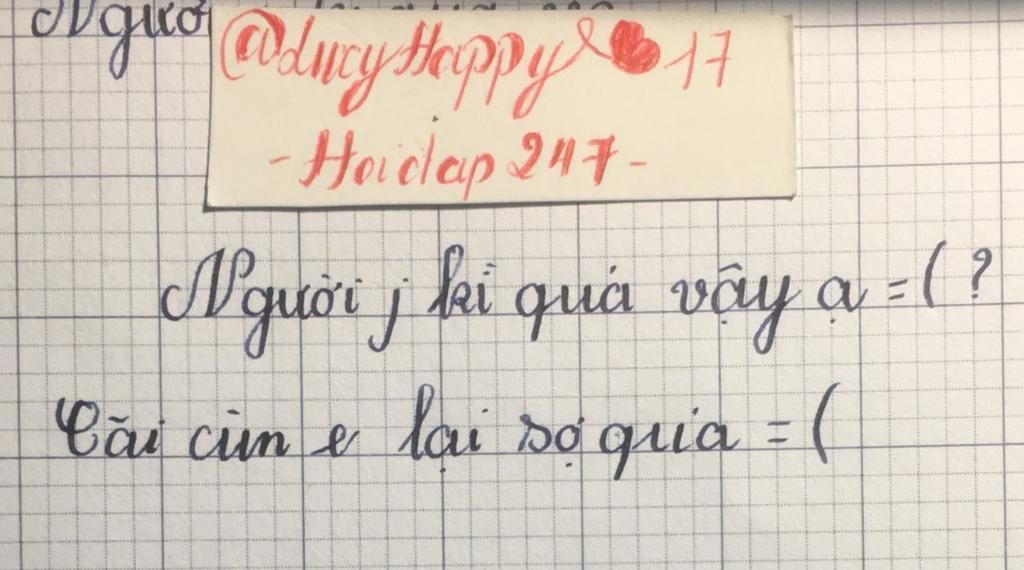 Ngườ
@LucyHappy 17
-Hoidap 247-
Người j kì quá vậy ạ =( ?
Cãi cùn e lại sợ quá =(